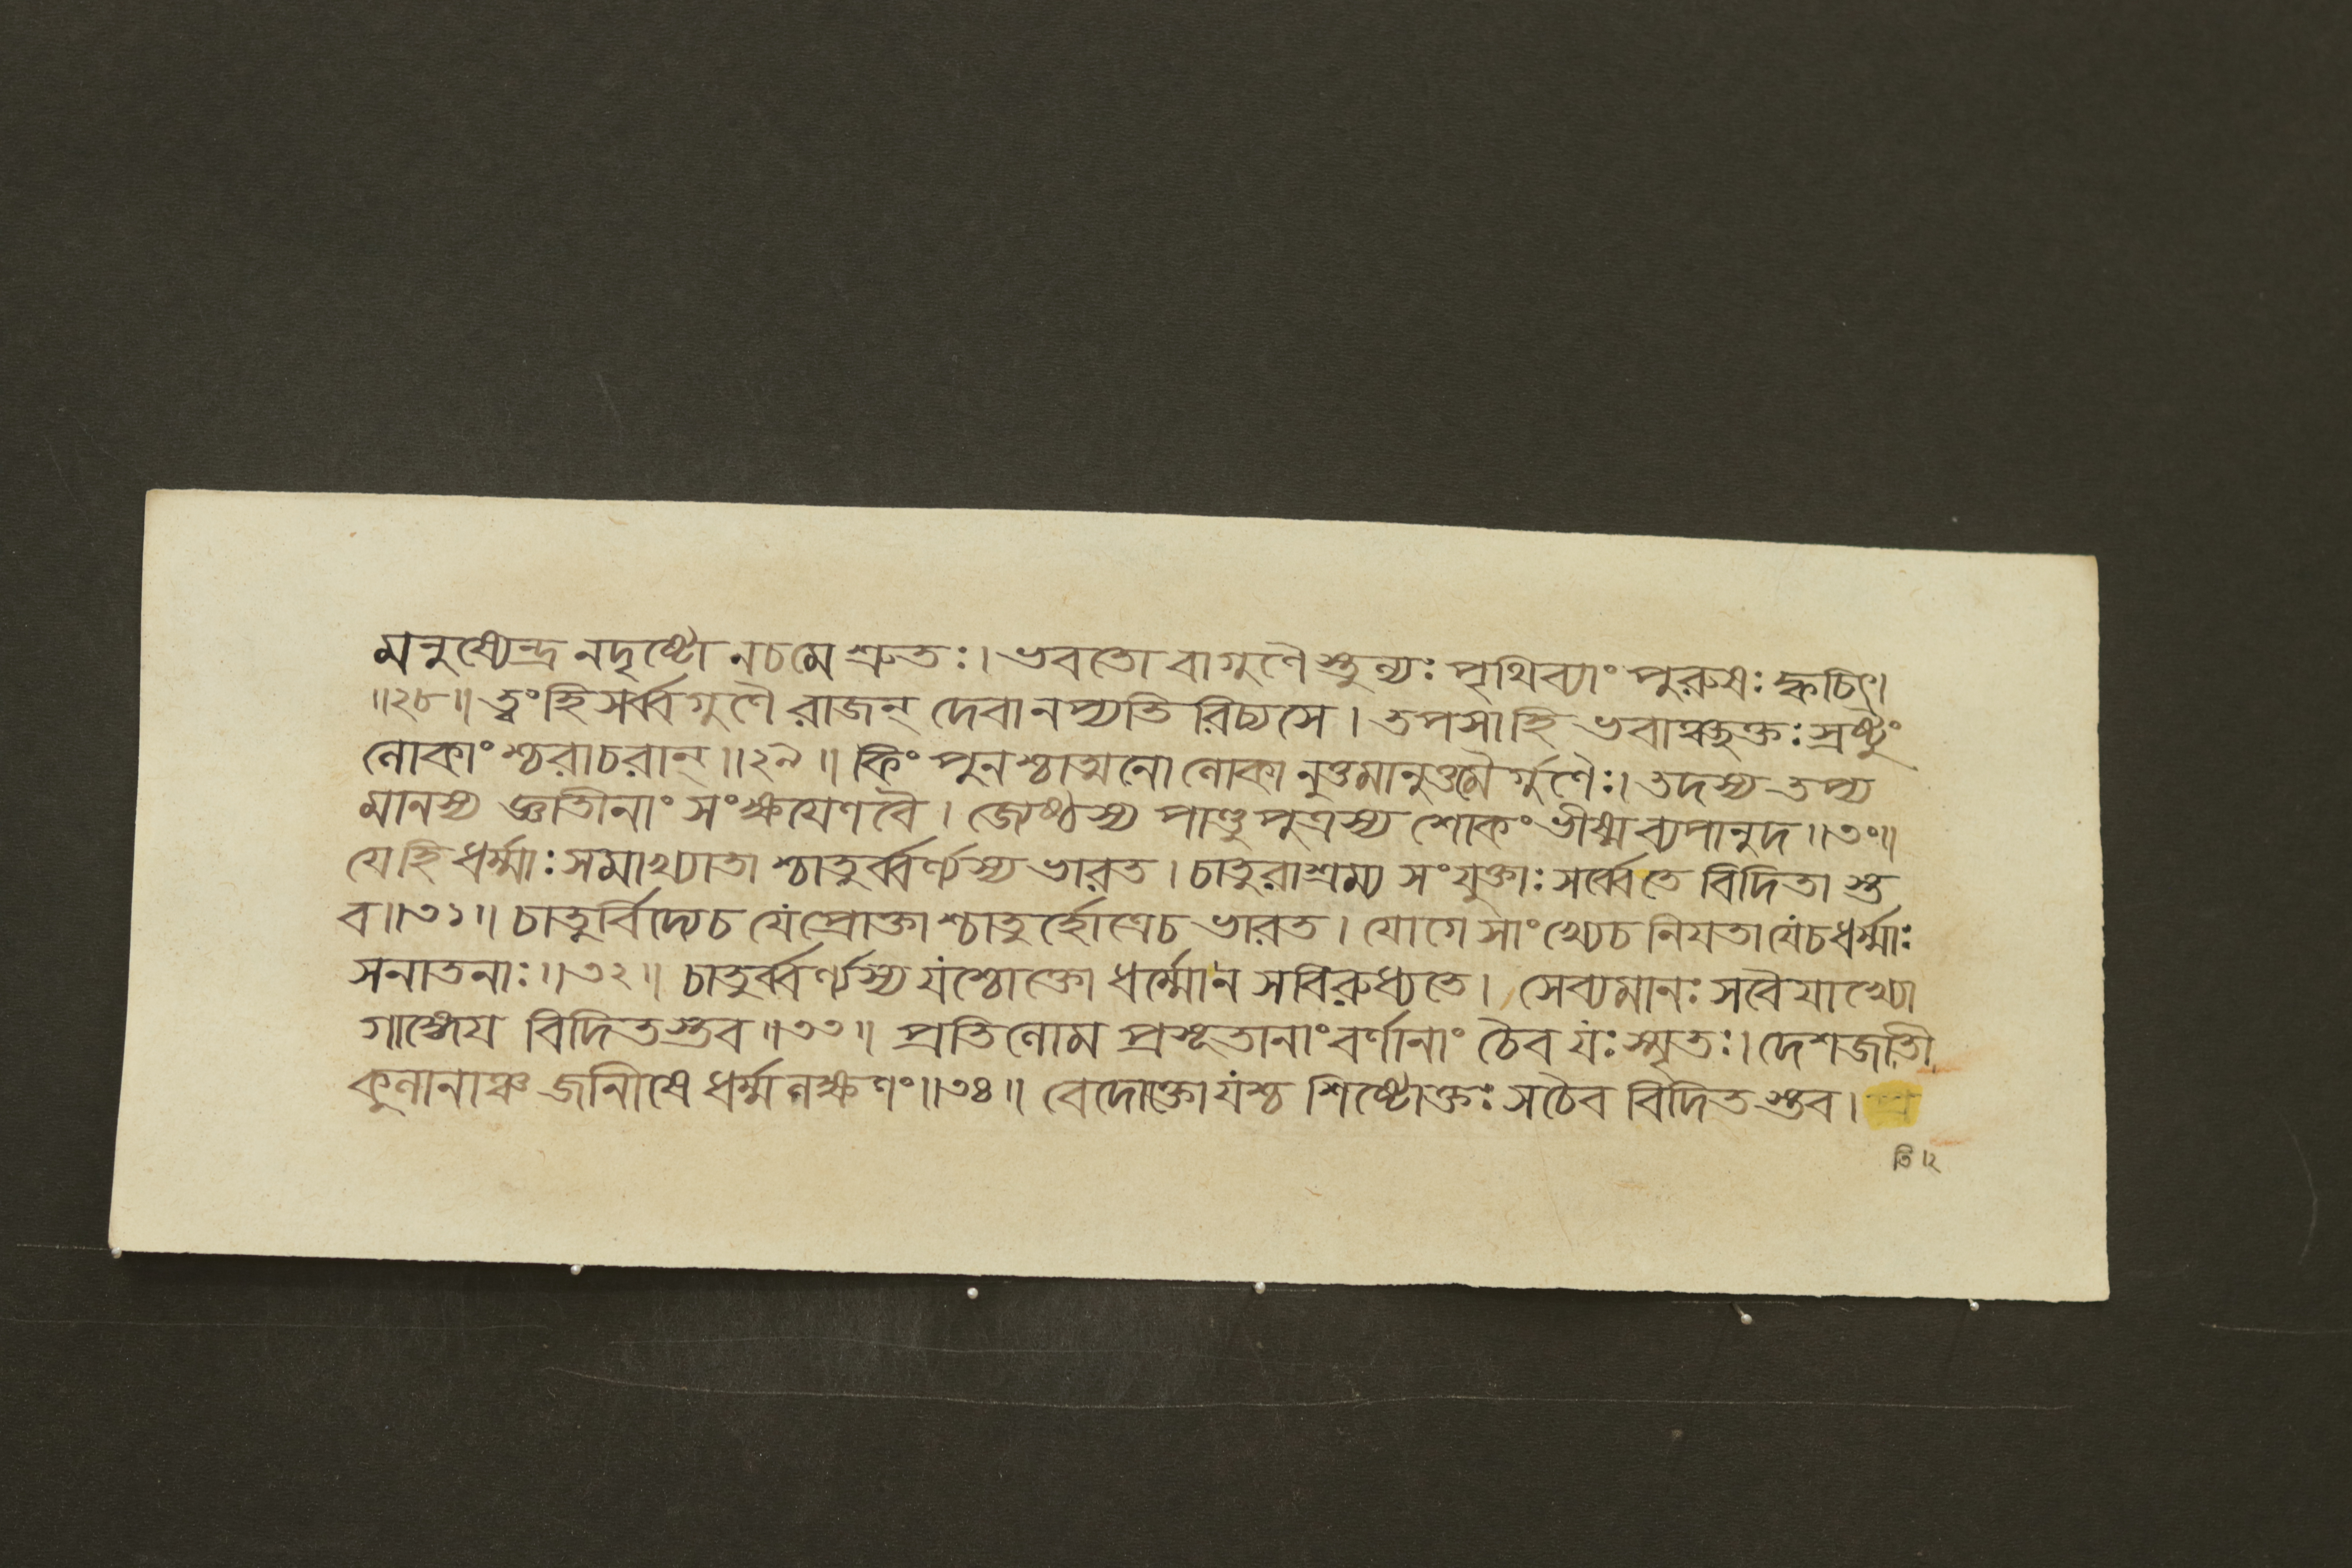 মনুষ্যেন্দ্র নদৃষ্টো নচমে শ্রুতঃ। ভবতো বাগুণৈ স্তুল্যঃ পৃথিব্যাং পুরুষঃ ক্বচিৎ।
॥২৮॥ ত্বং হি সর্ব্বগুণৈ রাজন্ দেবানপ্যতি রিচ্যসে। তপসা হি ভবাঞ্ছক্তঃ স্রষ্টুং
লোকাং শ্চরাচরান্॥২৯॥ কিং পুনশ্চাত্মনো লোকা নুত্তমানুত্তমৈ র্গুণৈঃ। তদস্য তপ্য
মানস্য জ্ঞাতীনাং সংক্ষয়েণ বৈ। জ্যেষ্ঠস্য পাণ্ডু পুত্রস্য শোকং ভীষ্ম ব্যপানুদ॥৩০॥
যে হি ধর্ম্মাঃ সমাখ্যাতা শ্চাতুর্ব্বর্ণ্যস্য ভারত। চাতুরাশ্রম্য সংযুক্তাঃ সর্ব্বেতে বিদিতা স্ত
ব॥৩১॥ চাতুর্বিদ্যেচ যেপ্রোক্তা শ্চাতু র্হোত্রেচ ভারত। যোগে সাংখ্যেচ নিয়তা যেচধর্ম্মাঃ
সনাতনাঃ॥৩২॥ চাতুর্ব্বর্ণ্যস্য যশ্চোক্তো ধর্ম্মোন সবিরুধ্যতে। সেব্যমানঃ সবৈয়াখ্যো
গাঙ্গেয় বিদিতস্তব॥৩৩॥ প্রতিলোম প্রসূতানাং বর্ণানাং চৈব যঃ স্মৃতঃ। দেশজাতী
কুলানাঞ্চ জানীষে ধর্ম্মলক্ষণং॥৩৪॥ বেদোক্তোযশ্চ শিষ্টোক্তঃ সচৈব বিদিতস্তব। প্র
তি।২